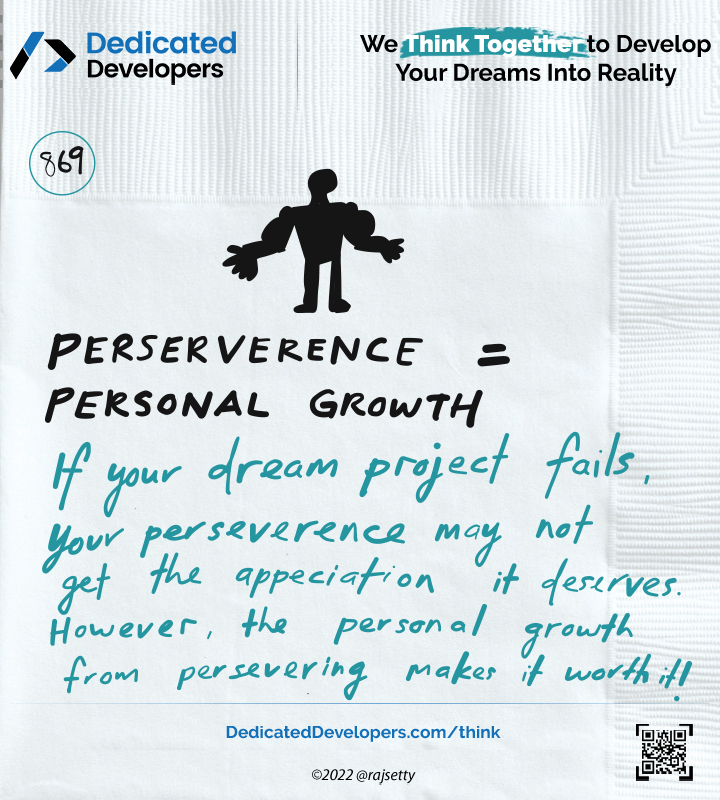 Dedicated
Developers
We Think Together to Develop
Your Dreams Into Reality
869
PERSERVERENCE =
PERSONAL GROWTH
If your dream project fails,
your perseverence may not
get the appeciation it deserves.
However, the personal growth
from persevering makes it worth it!
DedicatedDevelopers.com/think
©2022 @rajsetty